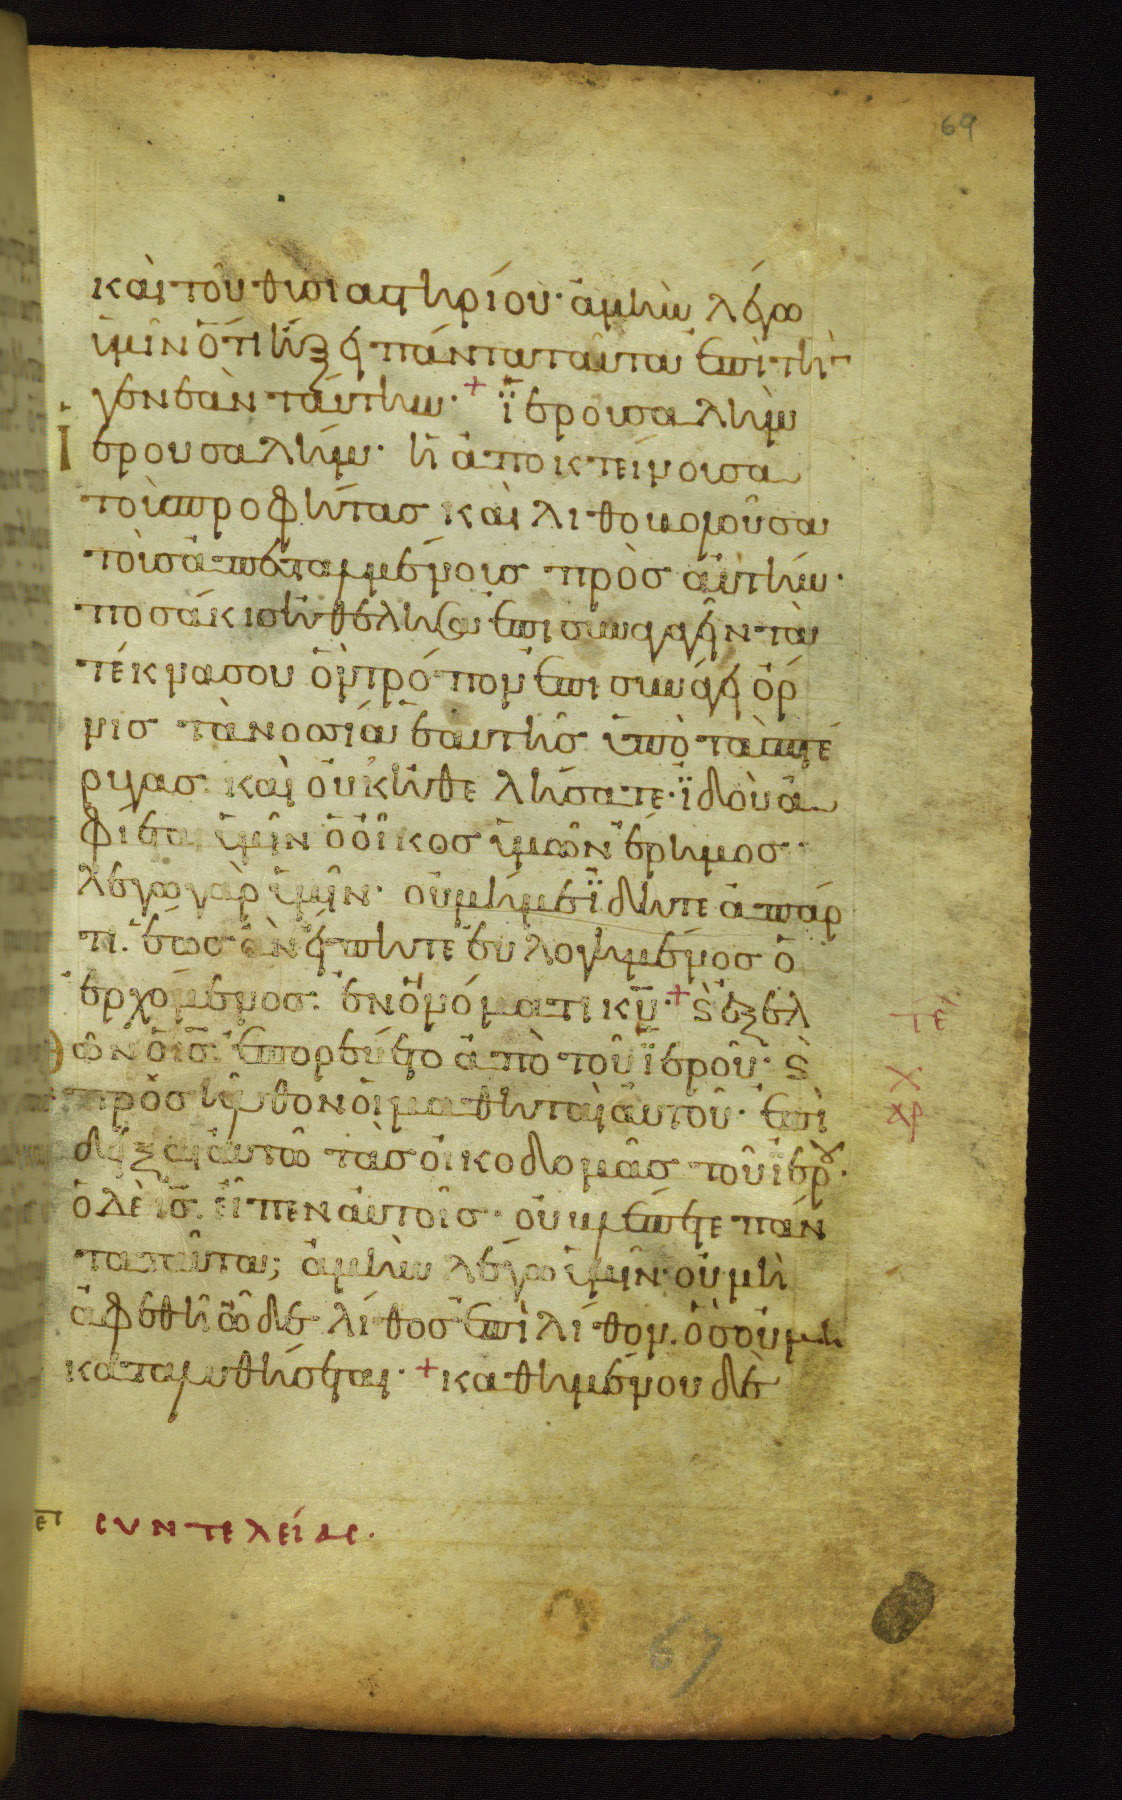 69
καὶ τοῦ θυσιαστηρίου· ἀμὴν λέγω
ὑμῖν ὅτι ἥξει πάντα ταῦτα ἐπὶ τὴν
γενεὰν ταύτην· + ϊερουσαλὴμ
ϊερουσαλήμ· ἡ ἀποκτείνουσα
τοὺς προφήτας καὶ λιθοβολοῦσα
τοὺς ἀπεσταλμένους πρὸς αὐτήν·
ποσάκις ἠθέλησα ἐπισυναγαγεῖν τὰ
τέκνα σου ὃν τρόπον ἐπισυνάγει ὄρ
νις τὰ νοσσία ἑαυτῆς ὑπὸ τὰς πτέ
ρυγας· καὶ οὐκ ἠθελήσατε· ϊδοὺ ἀ
φίεται ὑμῖν ὁ οἶκος ὑμῶν ἔρημος·
λέγω γὰρ ὑμῖν· οὐ μή με ϊδητε ἀπάρ
τι· ἕως ἂν εἴπητε εὐλογημένος ὁ
ἐρχόμενος· ἐν ὀνόματι κυ· + ϛ ἐξελ
τε
θὼν ὁ ις ἐπορεύετο ἀπὸ τοῦ ϊεροῦ· ϛ
προσῆλθον οἱ μαθηταὶ αὐτοῦ· ἐπι
χ
αρ
δεῖξαι αὐτῶ τὰς οἰκοδομὰς τοῦ ϊερου·
ὁ δὲ ις εἶπεν αὐτοῖς· οὐ βλέπετε πάν
τα ταῦτα; ἀμὴν λέγω ὑμῖν· οὐ μὴ
ἀφεθῆ ὧδε λίθος ἐπὶ λίθον· ὃς οὐ μὴ
καταλυθήσεται· + καθημένου δὲ
συντελείας·
67